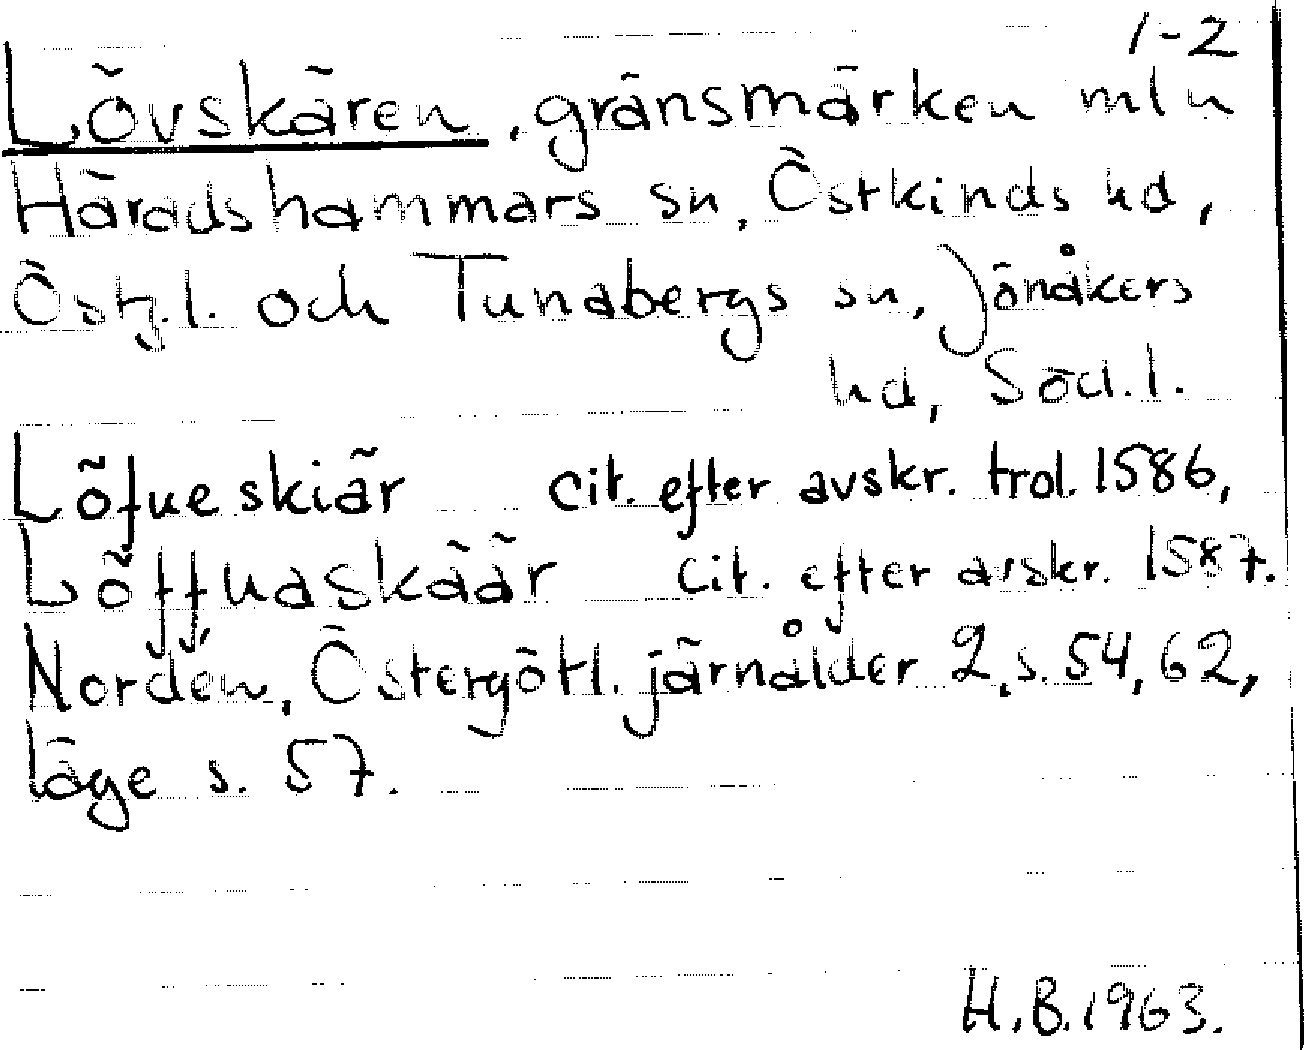 1-2
Lövskären, gränsmärken mln
Häradshammars sn, Östkinds hd,
Östg.l. och Tunabergs sn, Jönåkers
hd, Söd.l.
Löfueskiär cit. efter avskr. trol. 1586,
Löffuaskäär cit. efter avskr. 1587.
Nordén, Östergötl. järnålder 2, s. 54, 62,
läge s. 57.
H.B. 1963.